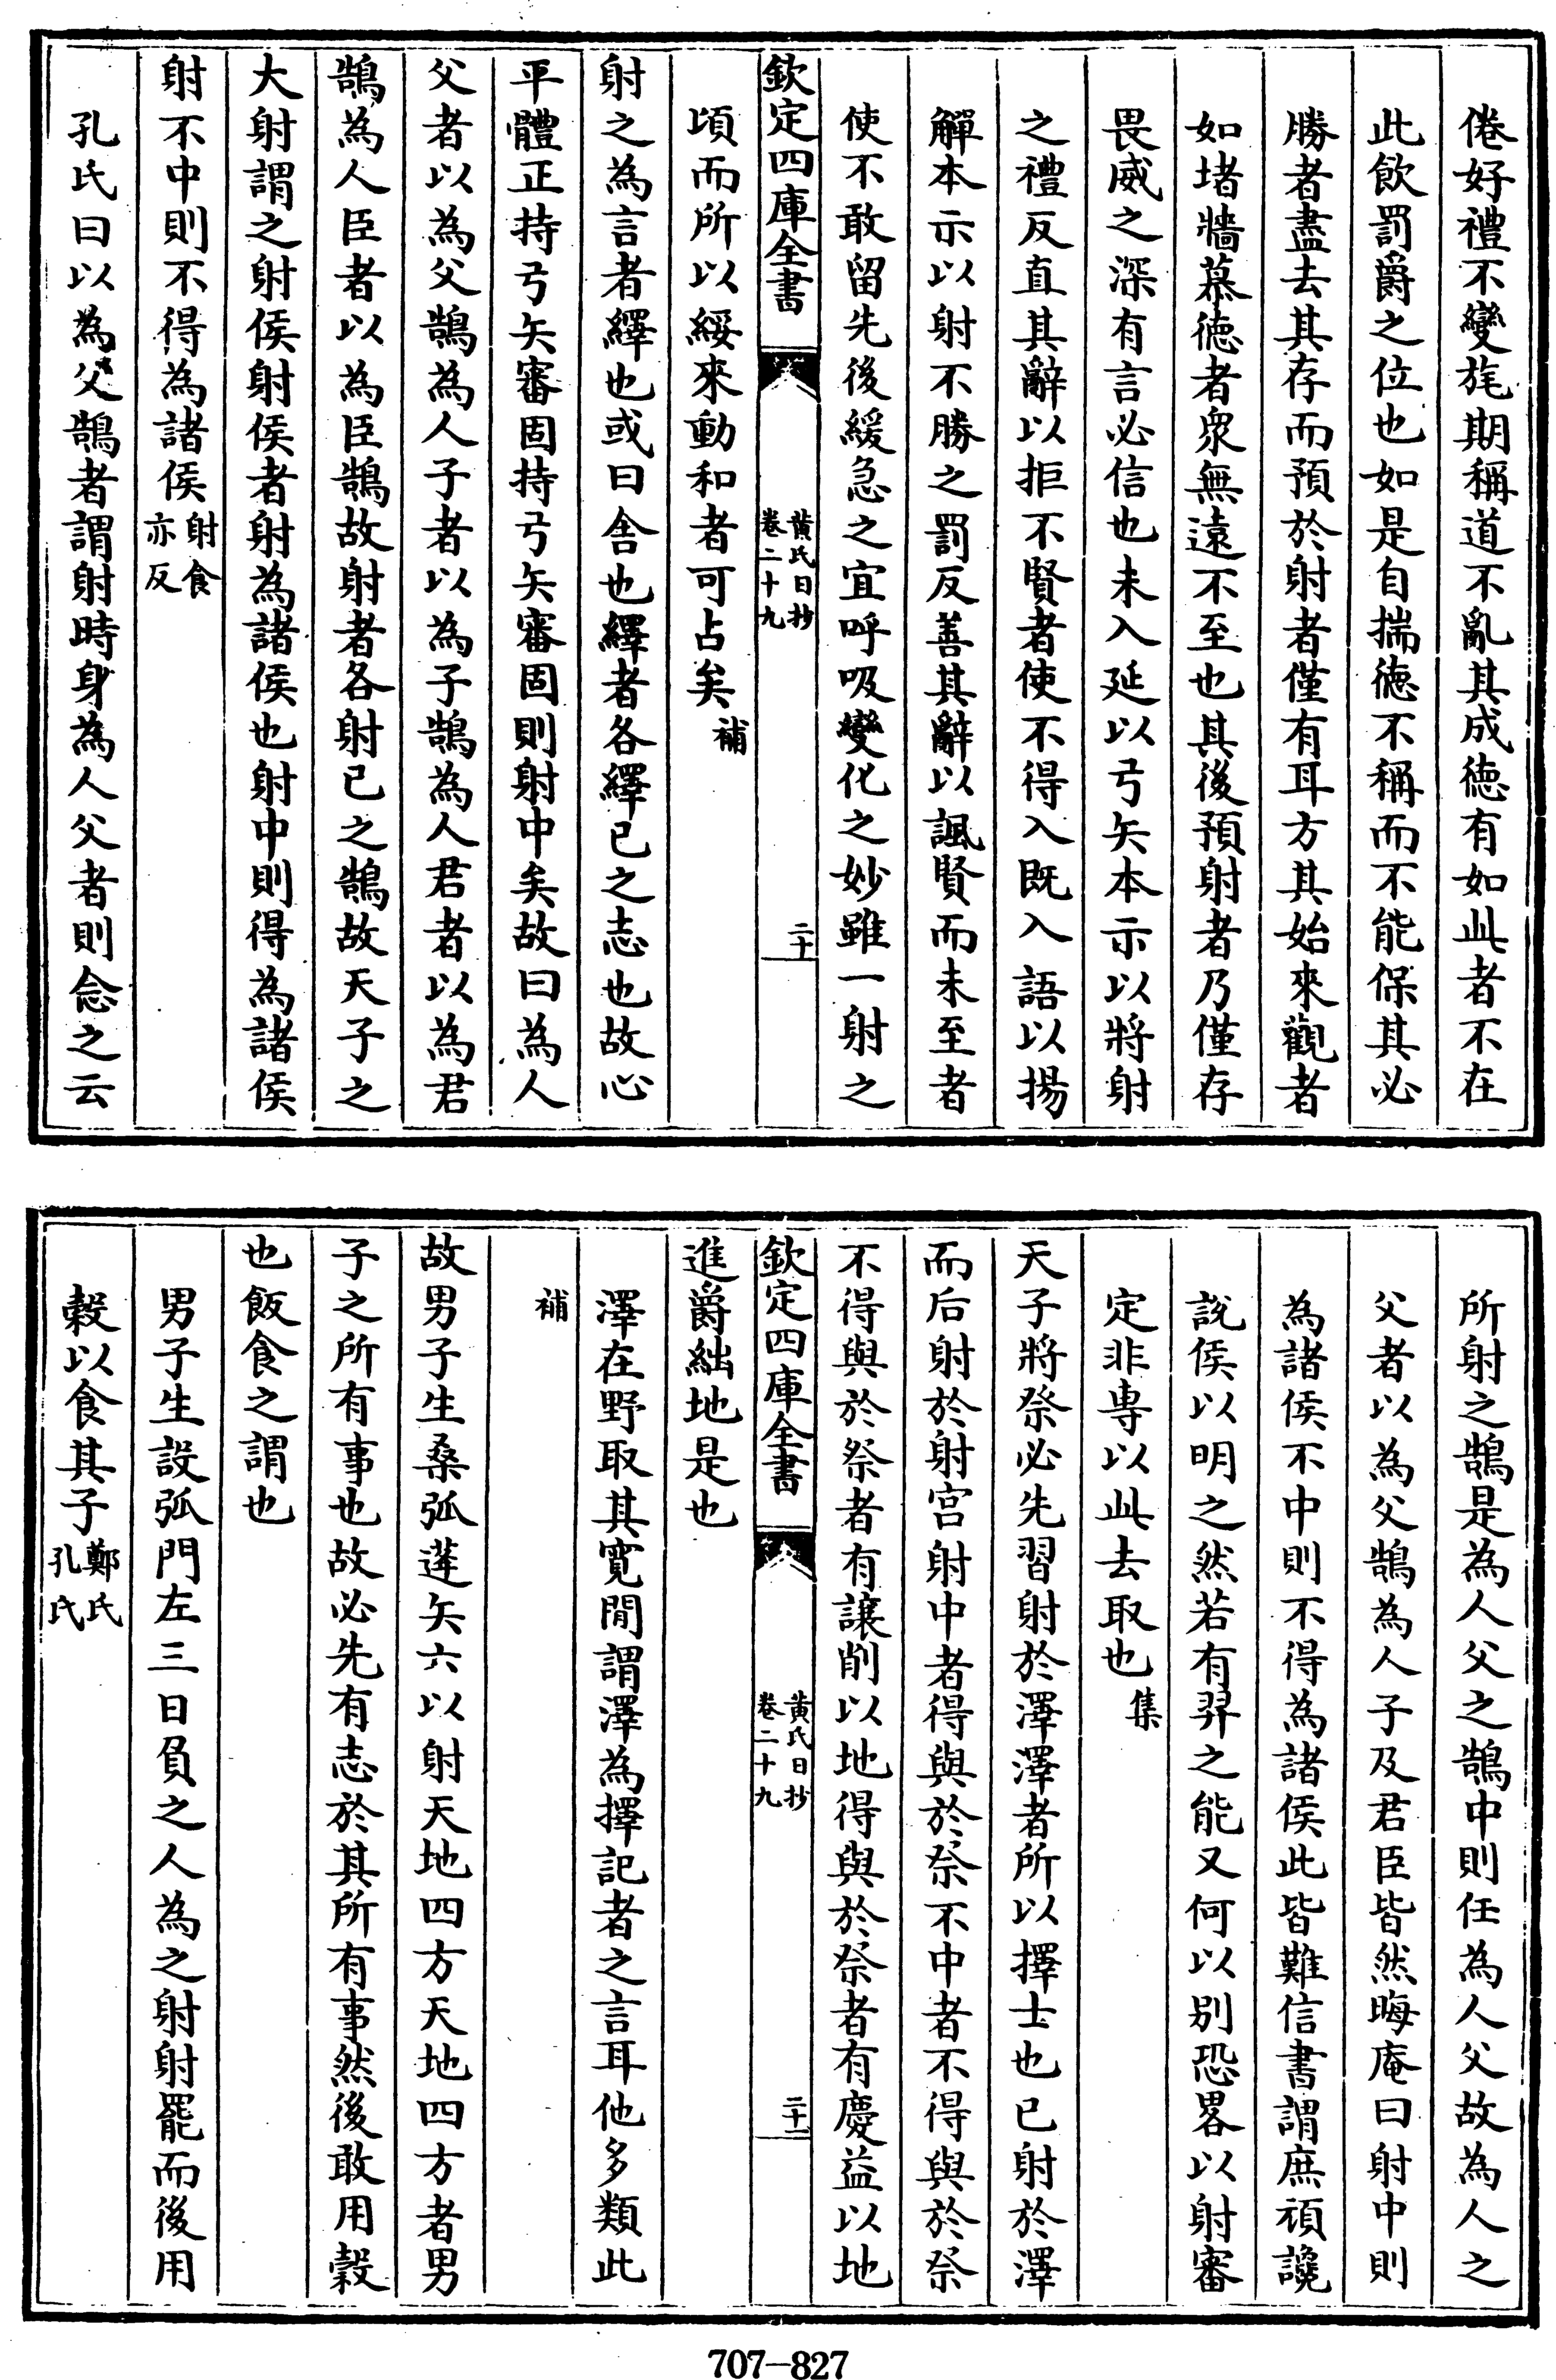 倦好禮不變旄期稱道不亂其成德有如此者不在
此飲罰爵之位也如是自揣德不稱而不能保其必
勝者盡去其存而預於射者僅有耳方其始來觀者
如堵牆慕德者衆無遠不至也其後預射者乃僅存
畏威之深有言必信也未入延以弓矢本示以將射
之禮反直其辭以拒不賢者使不得入既入語以揚
觶本示以射不勝之罰反善其辭以諷賢而未至者
使不敢留先後緩急之宜呼吸變化之妙雖一射之
欽定四庫全書
黄氏日抄
卷二十九
二十
頃而所以綏來動和者可占矣補
射之為言者繹也或曰舍也繹者各繹已之志也故心
平體正持弓矢審固持弓矢審固則射中矣故曰為人
父者以為父鵠為人子者以為子鵠為人君者以為君
鵠為人臣者以為臣鵠故射者各射已之鵠故天子之
大射謂之射侯射侯者射為諸侯也射中則得為諸侯
射不中則不得為諸侯射食亦反
孔氏曰以為父鵠者謂射時身為人父者則念之云
所射之鵠是為人父之鵠中則任為人父故為人之
父者以為父鵠為人子及君臣皆然晦庵曰射中則
為諸侯不中則不得為諸侯此皆難信書謂庶頑讒
説侯以明之然若有羿之能又何以别恐畧以射審
定非専以此去取也集
天子將祭必先習射於澤澤者所以擇士也已射於澤
而后射於射宫射中者得與於祭不中者不得與於祭
不得與於祭者有讓削以地得與於祭者有慶益以地
欽定四庫全書
黄氏日抄
卷二十九
二十一
進爵絀地是也
澤在野取其寛閒謂澤為擇記者之言耳他多類此
補
故男子生桑弧蓬矢六以射天地四方天地四方者男
子之所有事也故必先有志於其所有事然後敢用穀
也飯食之謂也
男子生設弧門左三日負之人為之射射罷而後用
穀以食其子鄭氏孔氏
707-827